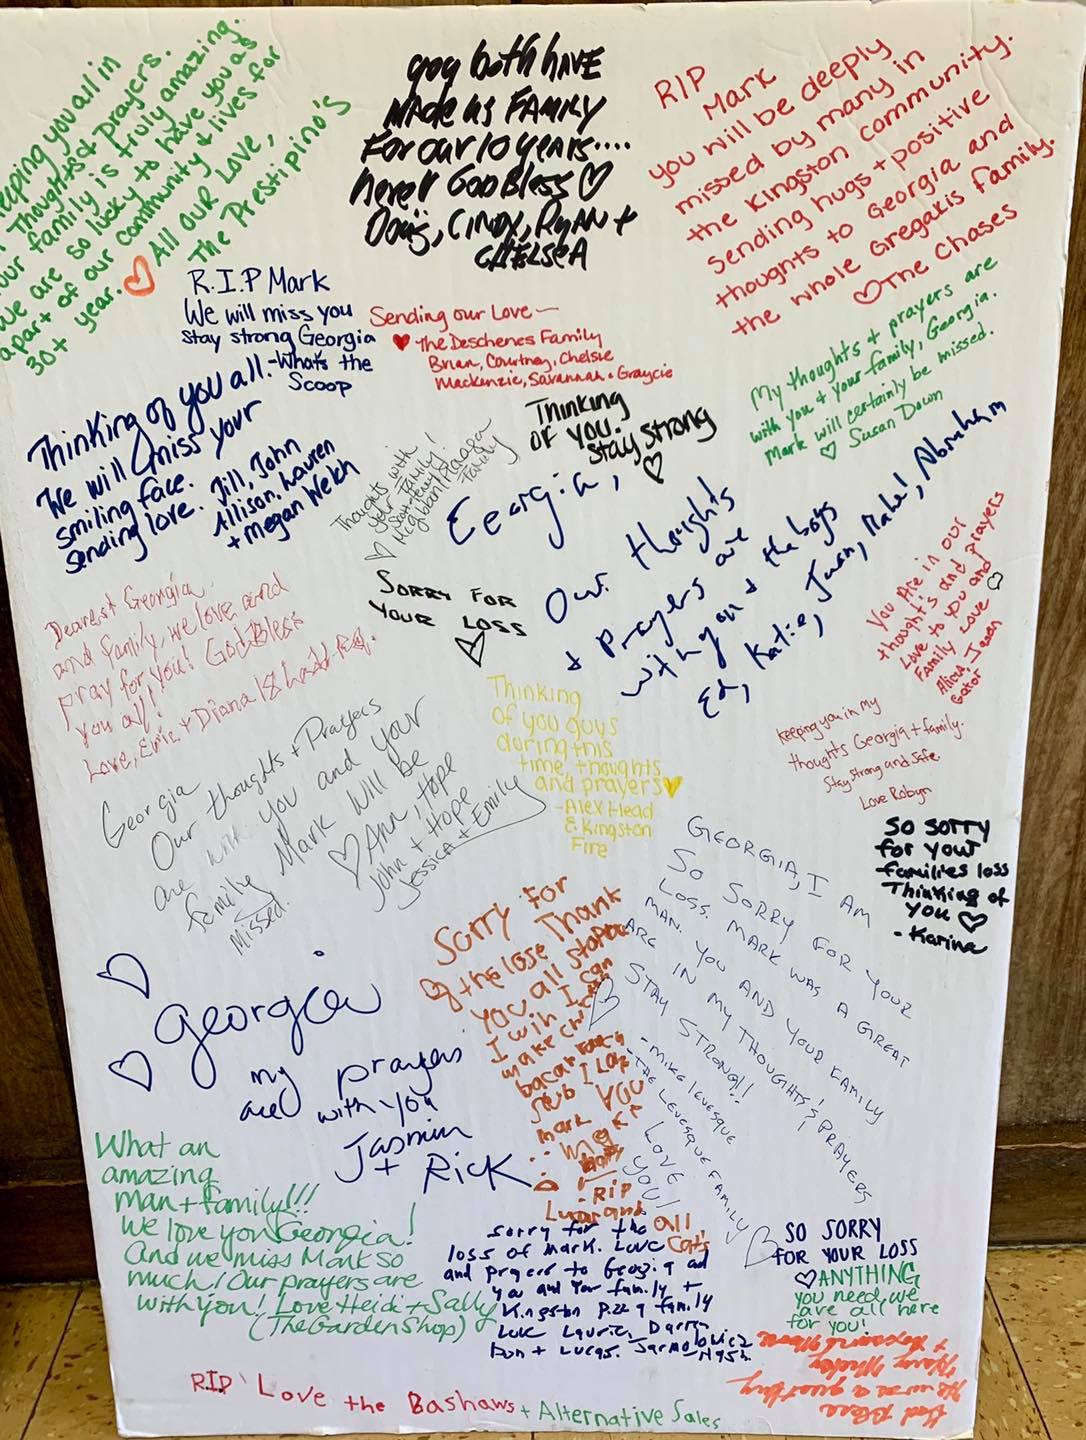 keeping you all in
Thoughts + prayers.
your family is truly amazing.
We are so lucky to have you as
apart of our community + lives for
30+ year. ♡ All our Love,
The Prestipino's
you both HAVE
Made us FAMILY
For our 10 years....
GOD Bless ♡
Doug, CINDY, RYAN +
CHELSEA
RIP
Mark
you will be deeply
missed by many in
the Kingston community.
Sending hugs + positive
thoughts to Georgia and
the whole Gregakis family.
♡The Chases
R.I.P Mark
We will miss you
stay strong Georgia
-What's the
Scoop
Sending our Love —
♥ The Deschenes Family
Brian, Courtney, Chelsie
Mackenzie, Savannah + Graycie
My thoughts + prayers are
with you + your family, Georgia.
Mark will certainly be missed.
♡ Susan Down
Thinking of you all.
We will miss your
smiling face.
Sending love. Jill, John
Allison, Lauren
+ Megan Welch
Thinking
of you.
stay strong
♡
Thoughts with
your Family!
Family
♡
Georgia,
Our thoughts
+ prayers are
with you + the boys
Ed, Katie, Abraham
SORRY FOR
YOUR LOSS
♡
You Are in our
thought's and prayers
Love to you and
Family Love ♡
Alicia, Jason
Gator
Dearest Georgia
and family, we love and
pray for you! God Bless
you all!
Love, + Diana
Thinking
of you guys
during this
time, thoughts
and prayers♥
-Alex Head
E. Kingston
Fire
Keeping you in my
thoughts Georgia + family.
Stay strong and safe.
Love Robyn
Georgia
Our thoughts + Prayers
are with you and your
family Mark will be
missed.
♡Ann, Hope
John + Hope
Jessica + Emily
So sorry
for your
families loss
Thinking of
you ♡
- Karina
GEORGIA, I AM
SO SORRY FOR YOUR
LOSS. MARK WAS A GREAT
MAN. YOU AND YOUR FAMILY
ARE IN MY THOUGHTS & PRAYERS
STAY STRONG!!
- MIKE LEVESQUE
- THE LEVESQUE FAMILY
♡
Sorry for
the lose Thank
You all
I wih I can
make
I Love
you
mark
- RIP
LOVE
YOU!
all
Cat's
♡
♡ Georgia
my prayers
are with you
Jasmin
+ Rick
What an
amazing
man + family!!!
We love you Georgia!
And we miss Mark so
much! Our prayers are
with you! Love Heidi + Sally
(The Garden Shop)
Sorry for the
loss of Mark. Love
and prayers to Georgia and
you and your family +
Kingston Pizza family
Luk Laurie, Darren
Don + Lucas.
♡
SO SORRY
FOR YOUR LOSS
♡ANYTHING
you need, we
are all here
for you!
God Bless
He was a great guy
RIP Love the Bashaws + Alternative Sales